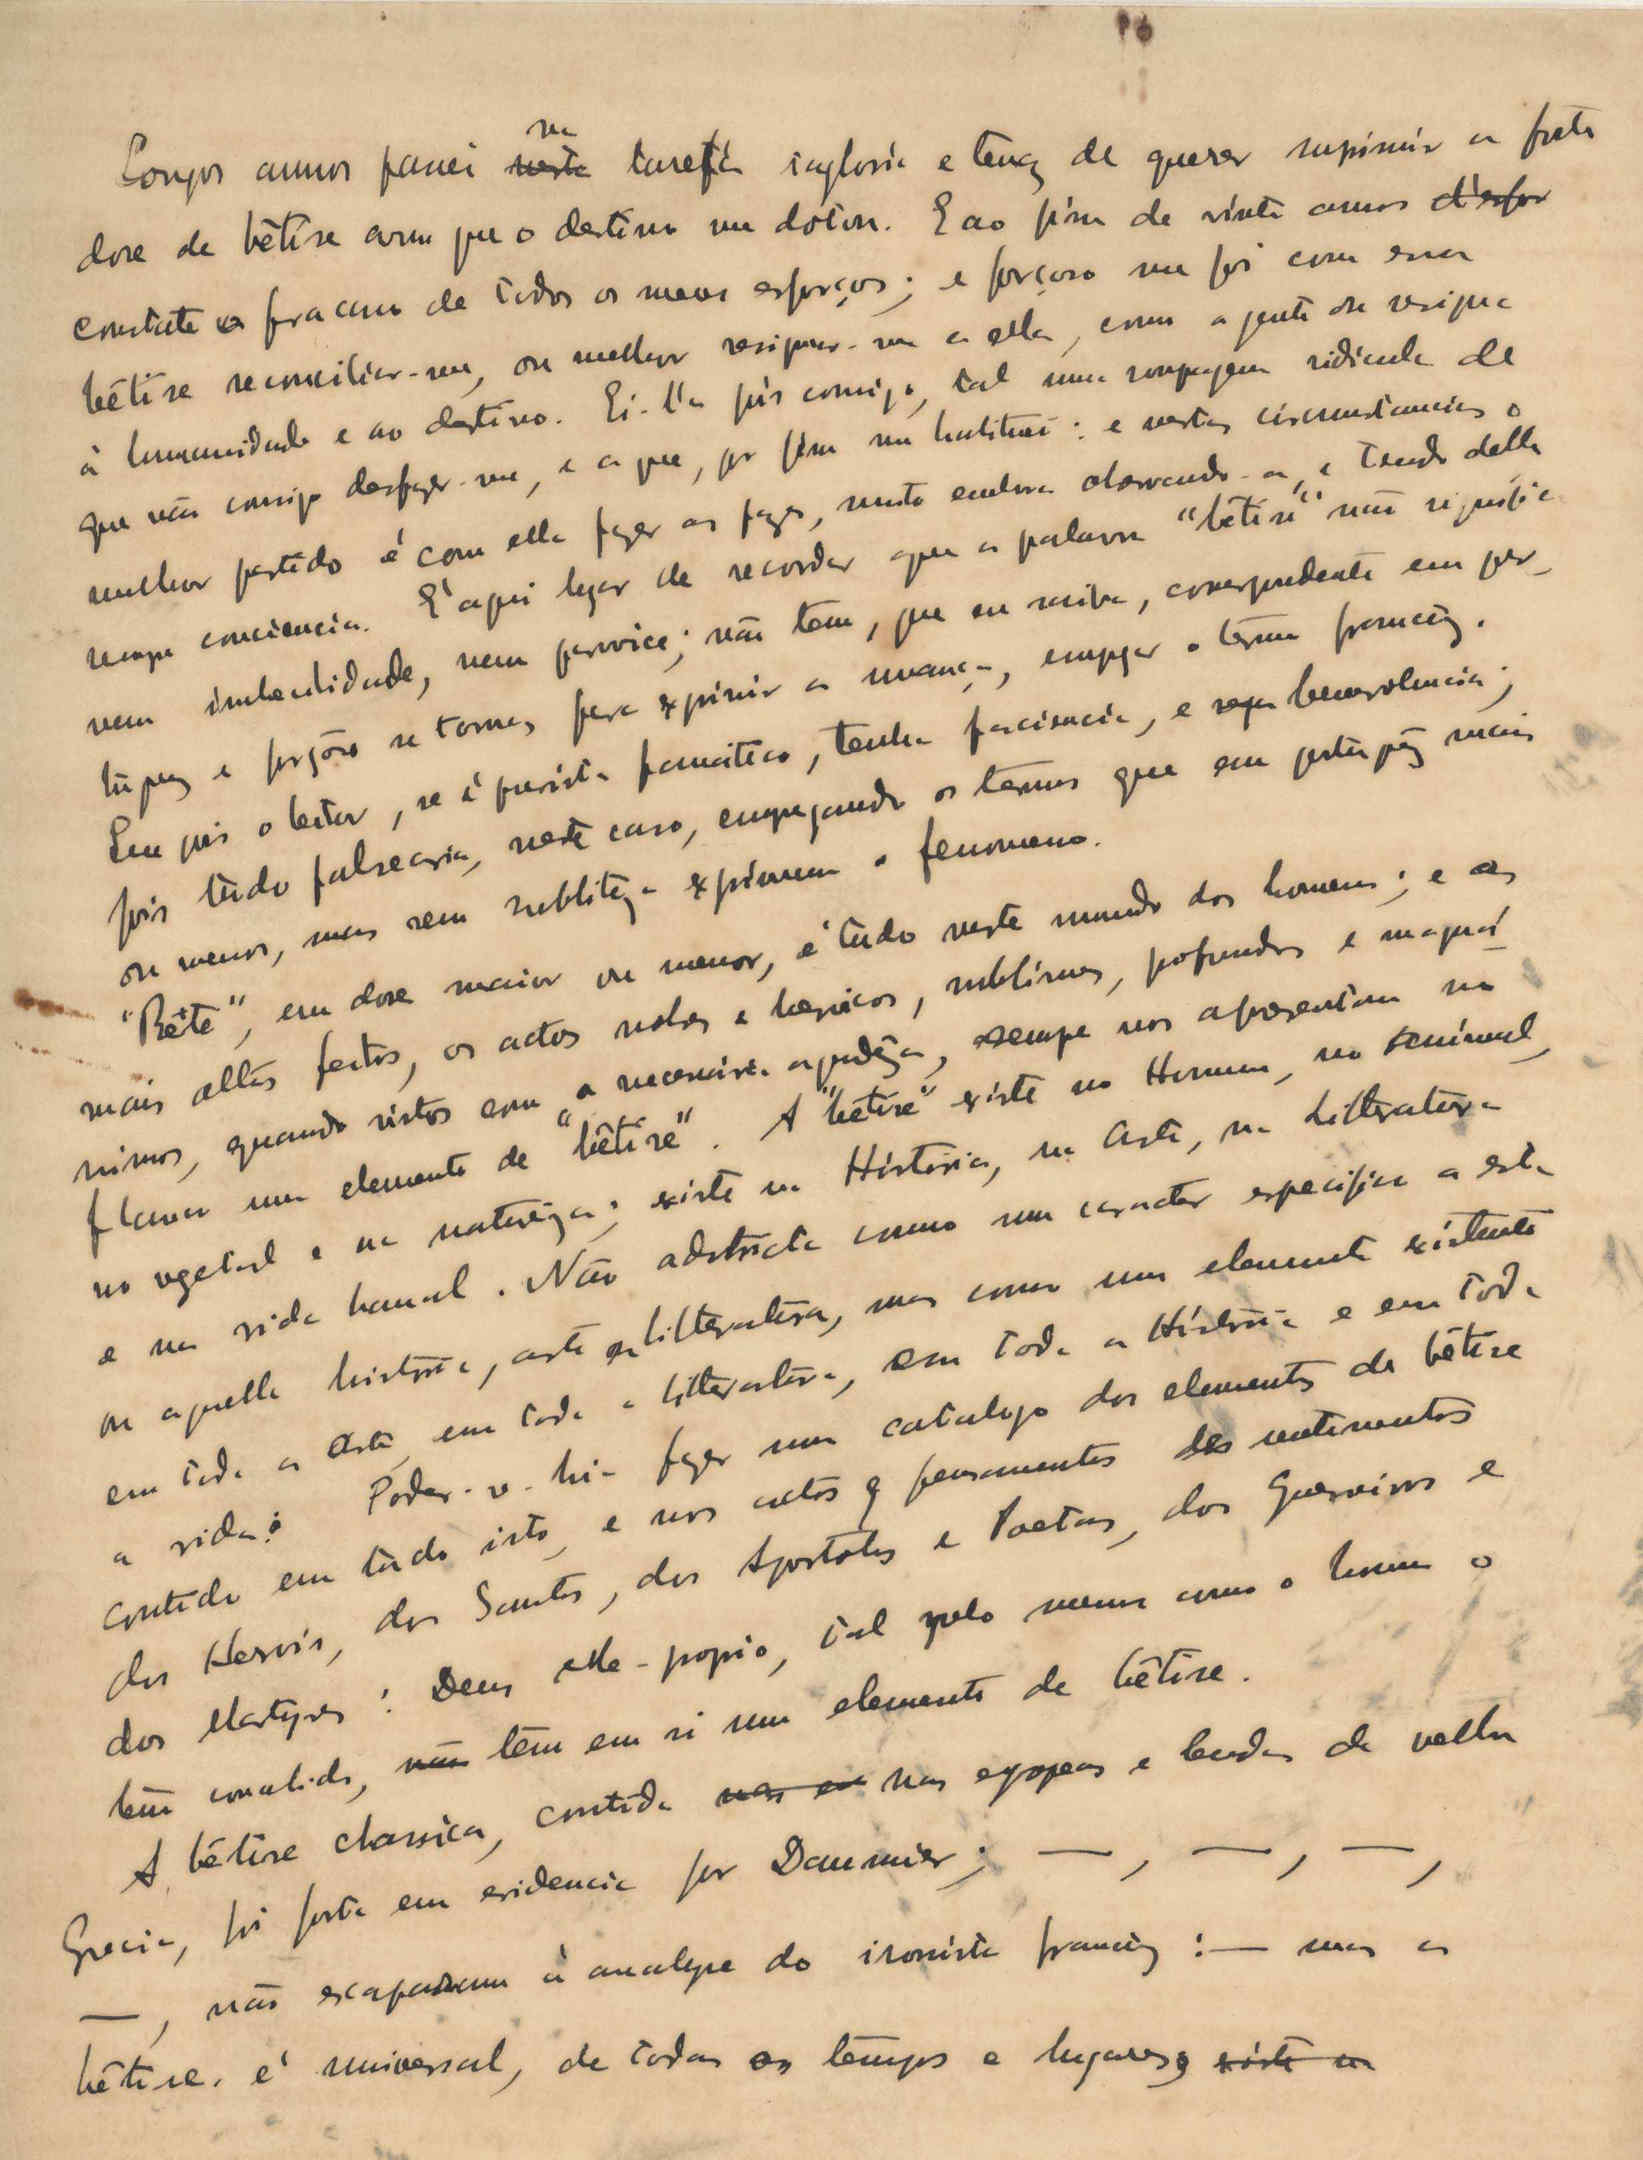 Longos annos passei na tarefa ingloria e tenaz de querer suprimir a forte
dose de bêtise com que o destino me dotou. E ao fim de vinte annos d'esfor
constato o fracasso de todos os meus esforços; e forçoso me foi com essa
bêtise reconciliar-me, ou melhor resignar-me a ella, como a gente se resigna
à humanidade e ao destino. Ei-l'a pois comigo, tal uma roupagem ridicula de
que não consigo desfazer-me, e a que, por fim me habituei: e nestas circumstancias o
melhor partido é com ella fazer as pazes, muito embora observando-a, e tendo della
sempre consciencia. E' aqui lugar de recordar que a palavra "bêtise" não significa
nem imbecilidade, nem parvoice; não tem, que eu saiba, correspondente em por-
tuguez e forçoso se torna, para exprimir a nuança, empregar o termo francez.
Que pois o leitor, se é purista fanatico, tenha paciencia, e seja benevolencia;
pois tudo falsearia, neste caso, empregando os termos que em portuguez mais
ou menos, mas sem subtileza exprimem o fenomeno.
"Bête", em dose maior ou menor, é tudo neste mundo dos homens; e os
mais altos feitos, os actos nobres e heroicos, sublimes, profundos e magna-
nimos, quando vistos com a necessaria agudeza, sempre nos apresentam no
flanco um elemento de "bêtise". A "bêtise" existe no Homem, no animal,
no vegetal e na natureza; existe na Historia, na Arte, na Litteratura
e na vida banal. Não adstricta como um caracter especifico a esta
ou aquella historia, arte ou litteratura, mas como um elemento existente
em toda a Arte, em toda a litteratura, em toda a Historia e em toda
a vida: Poder-se-hia fazer um catalogo dos elementos de bêtise
contida em tudo isto, e nos actos e pensamentos dos sentimentos
dos Heroes, dos Santos, dos Apostolos e Poetas, dos Guerreiros e
dos Martyres: Deus elle-proprio, tal pelo menos como o homem o
tem concebido, não tem em si um elemento de bêtise.
A bêtise classica, contida nas epopeas e lendas da velha
Grecia, foi posta em evidencia por Daumier; —, —, —,
—, não escaparam à analyse do ironista francez: — mas a
bêtise é universal, de todos os tempos e lugares; existe na